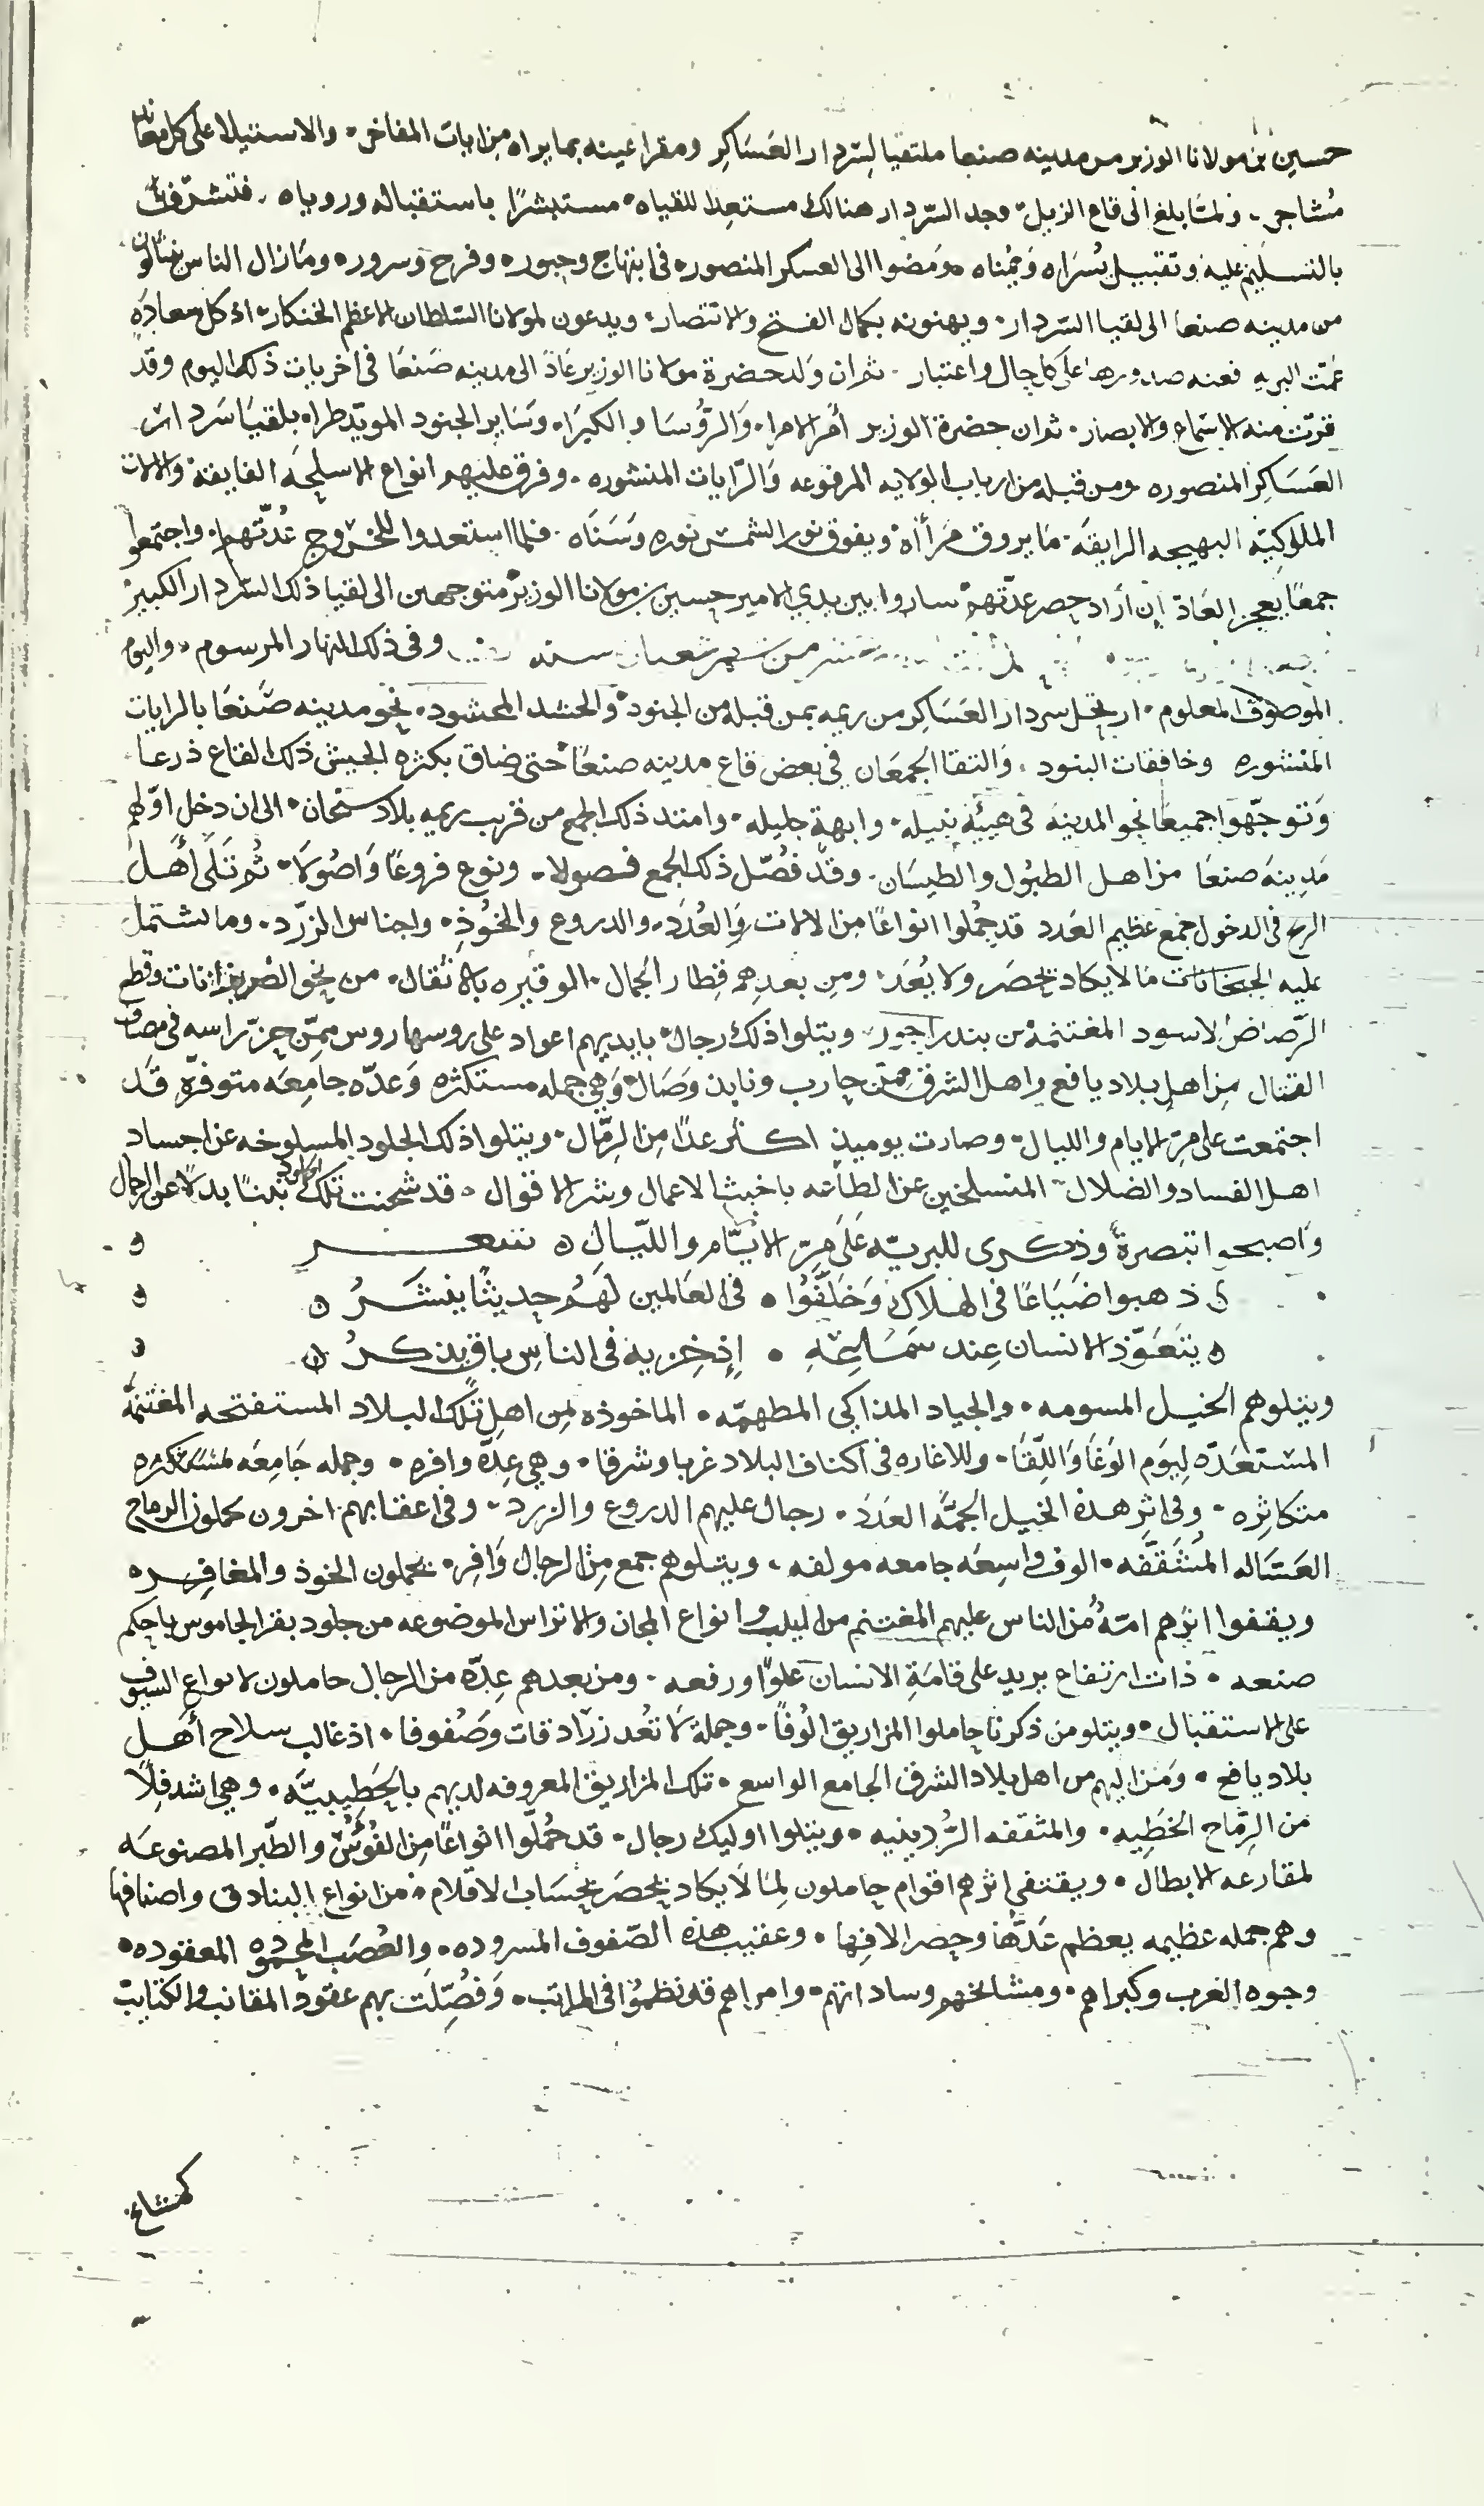 حسين بن مولانا الوزير من مدينه صنعا ملتقيا لسردار العساكر ومقرا عينه بما يراه من ايات المفاخر والاستيلا على كل معاند
مشاجر ولما بلغ الى قاع الزيل وجد السردار هنالك مستعدا للقياه مستبشرًا باستقباله وروياه فتشرف
بالتسليم عليه وتقبيل يسراه ويمناه ومضوا الى العسكر المنصوره فى ابتهاج وحبور وفرح وسرور وما زال الناس ينثالون
من مدينه صنعا الى لقيا السردار ويهنونه بكمال الفتح والانتصار ويدعون لمولانا السلطان الاعظم الخنكار اذ كل سعاده
عمت البريه فعنه صدورها على كل حال واعتبار ثم ان ولد حضرة مولانا الوزير عاد الى مدينه صنعا فى اخريات ذلك اليوم وقد
قرت منه الاسماع والابصار ثم ان حضرة الوزير امر الامرا والرؤسا والكبرا وساير الجنود المويد طرا بلقيا سردار
العساكر المنصوره ومن قبله من ارباب الولايه المرفوعه والرايات المنشوره وفرق عليهم انواع الاسلحه الفايقة والالات
الملوكيه البهيجه الرايقه ما يروق مرأاه ويفوق نور الشمس نوره وسناه فلما استعدوا للخروج عُدّتهم واجتمعوا
جمعًا يعجز العاد إن أراد حصر عدّتهم ساروا بين يدي الامير حسين بن مولانا الوزير متوجهين الى لقيا ذلك السردار الكبير
من شهر شعبان سنه وفى ذلك النهار المرسوم واليوم
الموصوف المعلوم ارتحل سردار العساكر من ريمه بمن قبله من الجنود والحشد المحشود نحو مدينه صنعا بالرايات
المنشوره وخافقات البنود والتقا الجمعان فى بعض قاع مدينه صنعا حتى ضاق بكثره الجيش ذلك القاع ذرعا
وتوجهوا جميعًا نحو المدينه فى هيئة نبيله وابهة جليله وامتد ذلك الجمع من قريب ريمه بلاد سنحان الى ان دخل اولهم
مدينه صنعا من اهل الطبول والطيسان وقد فُصّل ذلك الجمع فصولا ونوع فروعًا واصُولا ثم تلى أهل
الرمح فى الدخول جمع عظيم العدد قد حُملوا انواعًا من الالات والعُدد والدروع والخُوذ واجناس الزرد وما تشتمل
عليه الجبخانات ما لا يكاد يحصر ولا يُعد ومن بعدهم قطار الجمال الموقره بالاثقال من نحو الضربزانات وقطع
الرصاص الاسود المغتنمة من بندر اجور ويتلوا ذلك رجال بايديهم اعواد على روسها روس ممّن حز راسه فى مصاف
القتال من اهل بلاد يافع واهل الشرق ممّن حارب ونابذ وصال وهي جمله مستكثره وعدّه جامعه متوفرة قد
اجتمعت على مرّ الايام والليال وصارت يوميذ اكثر عدًا من الرمال ويتلوا ذلك الجلود المسلوخه عن اجساد
اهل الفساد والضلال المنسلخين عن الطاعه باخبث الاعمال وشر الاقوال قد شحنت تلك الجلود تبنًا بدلًا عن الرجال
واصبحوا تبصرة وذكرى للبريه على مرّ الايام والليال شعر
ذهبوا ضياعًا فى الهلاك وخلفوا فى العالمين لهم حديثًا ينشر
يتعوّذ الانسان عند سماعه إذ خزيه فى الناس باقٍ يذكر
ويتلوهم الخيل المسومه والجياد المذاكي المطهمه الماخوذه من اهل تلك البلاد المستفتحه المغتنمه
المستعده ليوم الوغا واللقا وللاغاره فى اكناف البلاد غربا وشرقا وهي عدّة وافره وجمله جامعه مستكثره
متكاثره وفى اثر هذه الخيل الجمّه العدد رجال عليهم الدروع والزرد وفى اعقابهم اخرون يحملون الرماح
العساله المثقفه الوف واسعه جامعه مولفه ويتلوهم جمع من الرجال وافر يحملون الخوذ والمغافر
ويقفوا اثرهم امة من الناس عليهم المغتنم من اليلب وانواع المجان والاتراس الموضوعه من جلود بقر الجاموس باحكم
صنعه ذات ارتفاع يزيد على قامة الانسان علوّا ورفعه ومن بعدهم عدّه من الرجال حاملون لانواع السيوف
على الاستقبال ويتلو من ذكرنا حاملوا المزاريق الوفًا وجملة لا تعد زرادقات وصفوفا اذ غالب سلاح أهل
بلاد يافع ومن اليهم من اهل بلاد الشرق الجامع الواسع تلك المزاريق المعروفه لديهم بالحطيبيّه وهي اشد فلًا
من الرماح الخطيه والمثقفه الرُدينيه ويتلوا اوليك رجال قد حُملّوا انواعًا من الفُوُس والطبر المصنوعه
لمقارعه الابطال ويقتفي اثرهم اقوام حاملون لما لا يكاد يحصر بحساب الاقلام من انواع البنادق واصنافها
وهم جمله عظيمه يعظم عدّها وحصر الافها وعقيب هذه الصفوف المسروده والعُصَب المعقوده
وجوه العرب وكبراهم ومشايخهم وساداتهم وامراهم قد نظموا فى المراتب وفُصّلت بهم عقود المقانب والكتايب